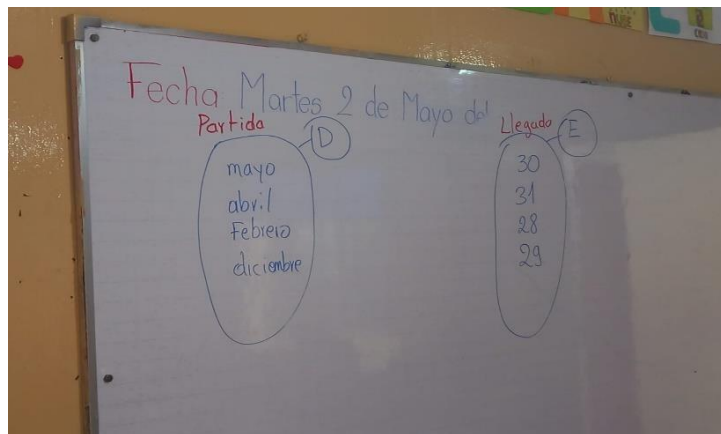 Fecha Martes 2 de Mayo del
Partida
D
mayo
abril
Febrero
diciembre
Llegada
E
30
31
28
29